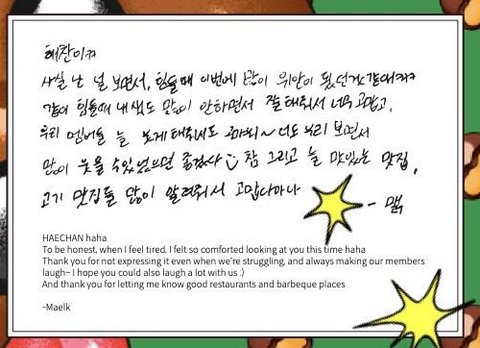 해찬이ㅋㅋ
사실 난 널 보면서, 힘들때 이번에 많이 위안이 됐던것 같애ㅋㅋㅋ
같이 힘들때 내색도 많이 안하면서 잘해줘서 너무 고맙고,
우리 멤버들 늘 웃게해줘서도 고마워~ 너도 우리 보면서
많이 웃을 수 있었으면 좋겠다 :) 참 그리고 늘 맛있는 맛집,
고기 맛집들 많이 알려줘서 고맙다마나
- 맬
HAECHAN haha
To be honest, when I feel tired, I felt so comforted looking at you this time haha
Thank you for not expressing it even when we're struggling, and always making our members
laugh~ I hope you could also laugh a lot with us :)
And thank you for letting me know good restaurants and barbeque places
-Maelk